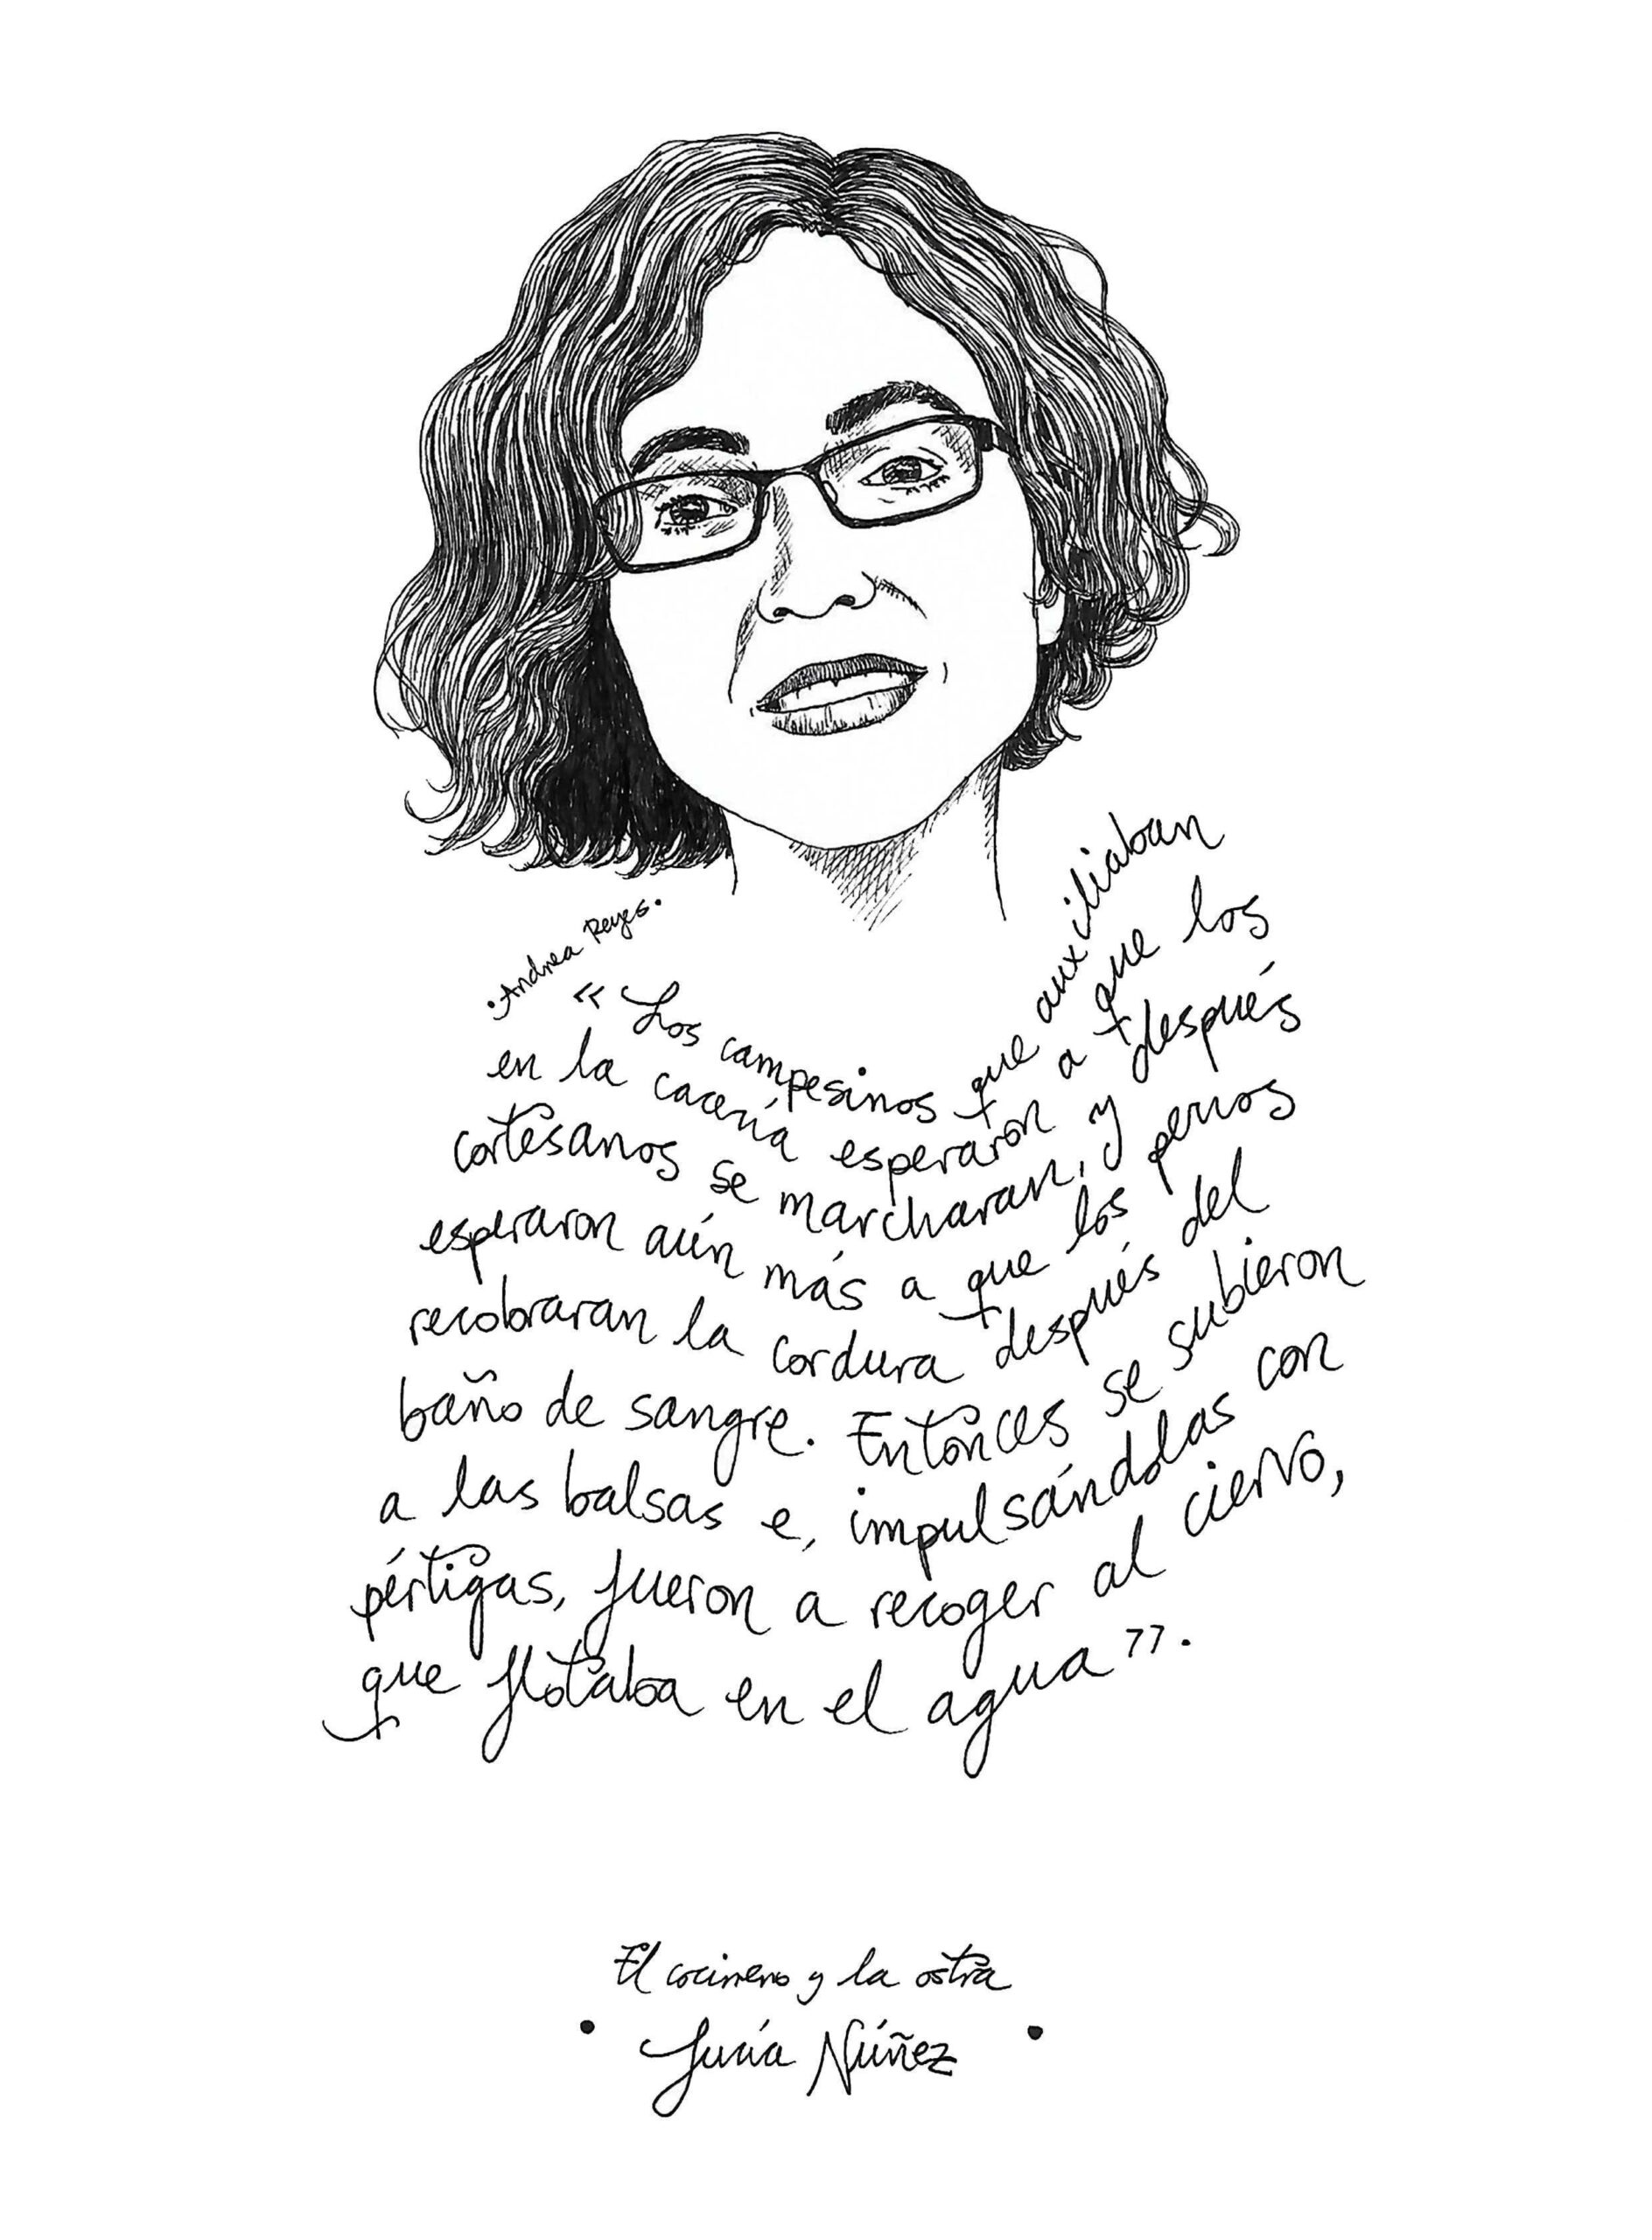 ·Andrea Reyes·
«Los campesinos que auxiliaban
en la cacería esperaron a que los
cortesanos se marcharan, y después
esperaron aún más a que los perros
recobraran la cordura después del
baño de sangre. Entonces se subieron
a las balsas e, impulsándolas con
pértigas, fueron a recoger al ciervo,
que flotaba en el agua”.
El cocinero y la ostra
· Lucía Núñez ·